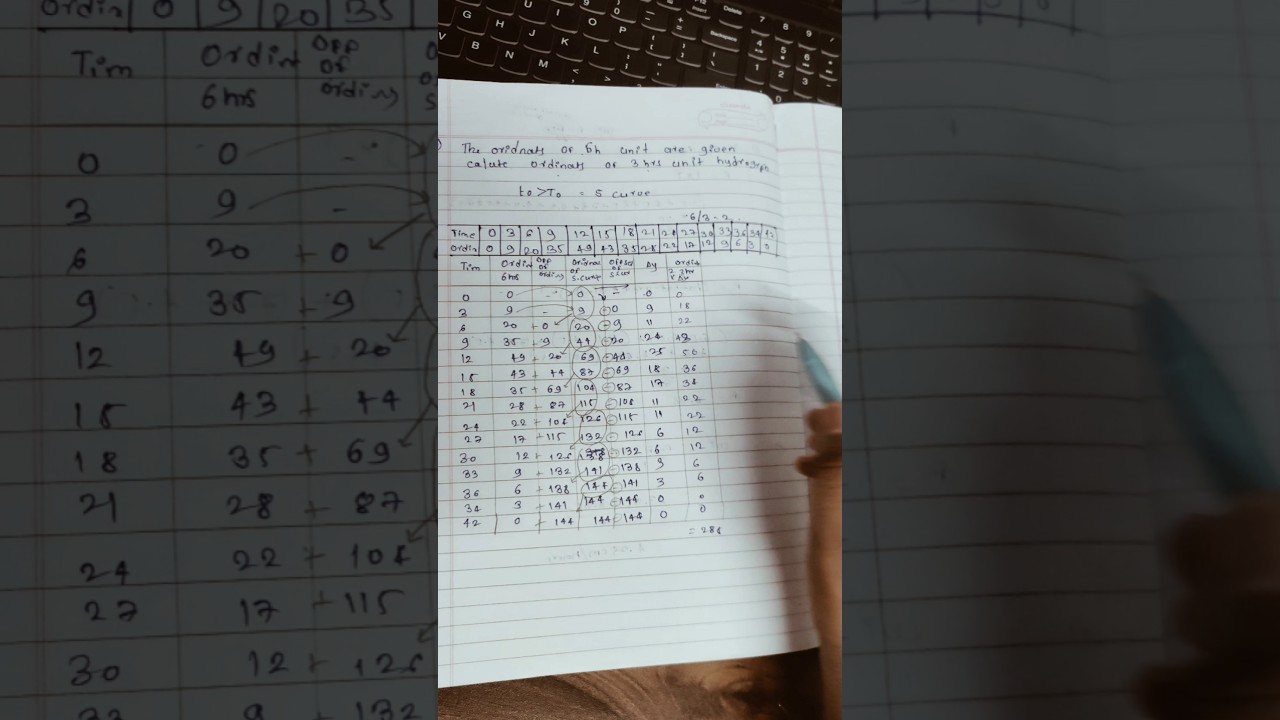 The oridnats of 6h unit are given
calute ordinats of 3hrs unit hydrograph
to >To = S curve
6/3 = 2
Time 0 3 6 9 12 15 18 21 24 27 30 33 36 39 42
Ordin 0 9 20 35 49 43 35 28 22 17 12 9 6 3 0
Tim Ordin 6hrs Off of ordins Ordinat of S.curve Offset of S cur Δy Ordin 3hr
0 0 - 0 - 0 0
3 9 - 9 - 0 9 18
6 20 + 0 20 - 9 11 22
9 35 + 9 44 - 20 24 48
12 49 + 20 69 - 44 25 50
15 43 + 44 87 - 69 18 36
18 35 + 69 104 - 87 17 34
21 28 + 87 115 - 104 11 22
24 22 + 104 126 - 115 11 22
27 17 + 115 132 - 126 6 12
30 12 + 126 138 - 132 6 12
33 9 + 132 141 - 138 3 6
36 6 + 138 144 - 141 3 6
34 3 + 141 144 - 144 0 0
42 0 + 144 144 - 144 0 0
= 288